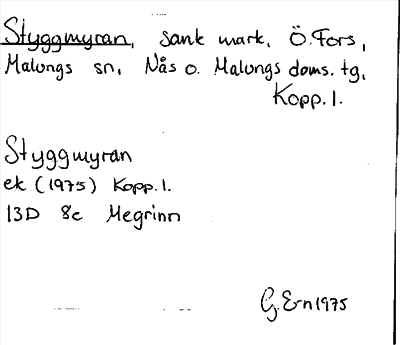 Styggmyran, Sank mark, Ö. Fors,
Malungs sn, Nås o. Malungs doms. tg,
Kopp. l.
Styggmyran
ek (1975) Kopp. l.
13D 8c Megrinn
G. Ern 1975